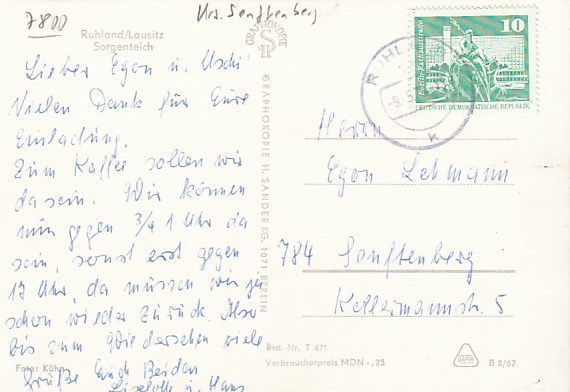 7800
Krs. Senftenberg
Ruhland/Lausitz
Sorgenteich
Lieber Egon u. Uschi!
Vielen Dank für Eure
Einladung.
Zum Kaffee sollen wir
da sein. Wir können
nur gegen 3/4 1 Uhr da
sein, sonst erst gegen
17 Uhr, da müssen wir ja
schon wieder zurück. Also
bis zum Wiedersehen viele
Grüße Euch Beiden
Liselotte u. Hans
Foto: Kühn
GRAPHOKOPIE
SH
GRAPHOKOPIE H. SANDER KG, 1071, BERLIN
RUHLAND
K
10
Berlin, Rathausstraße
DEUTSCHE DEMOKRATISCHE REPUBLIK
Herrn
Egon Lehmann
784 Senftenberg
Kellermannstr. 5
Best.-Nr. T 471
Verbraucherpreis MDN -,25
B 5/67